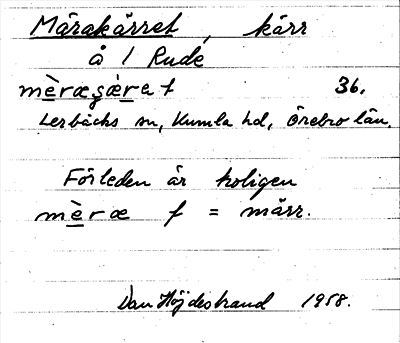 Märakärret, kärr
å 1 Rude
mèræşæ̀ret 36.
Lerbäcks sn, Kumla hd, Örebro län.
Förleden är troligen
mèræ f = märr.
Dan Höjdestrand 1958.